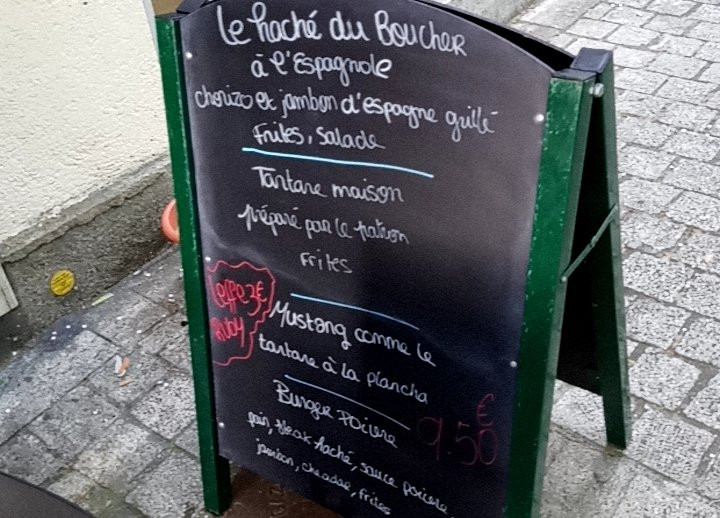 Le haché du Boucher
à l'Espagnole
chorizo et jambon d'espagne grillé
Frites, salade
Tartare maison
préparé par le patron
Frites
Leffe 3€
Ruby
Mustang comme le
tartare à la plancha
Burger Poivre
€
9.50
pain, steak haché, sauce poivre,
jambon, cheddar, frites